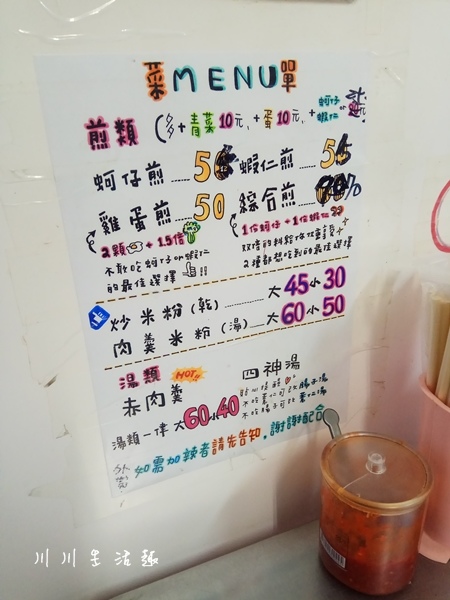 菜MENU單
煎類 (多+青菜10元, +蛋10元, +蚵仔or蝦仁
蚵仔煎......5 蝦仁煎......5
雞蛋煎......50 綜合煎......
2顆 + 1.5倍
不敢吃蚵仔or蝦仁
的最佳選擇!!!
1份蚵仔+1份蝦仁
2種都想吃到的最佳選擇
炒米粉(乾)......大45小30
肉羹米粉(湯)...大60小50
湯類 HOT
赤肉羹
四神湯
湯類一律 大60小40
如需加辣者請先告知,謝謝配合
川川生活趣